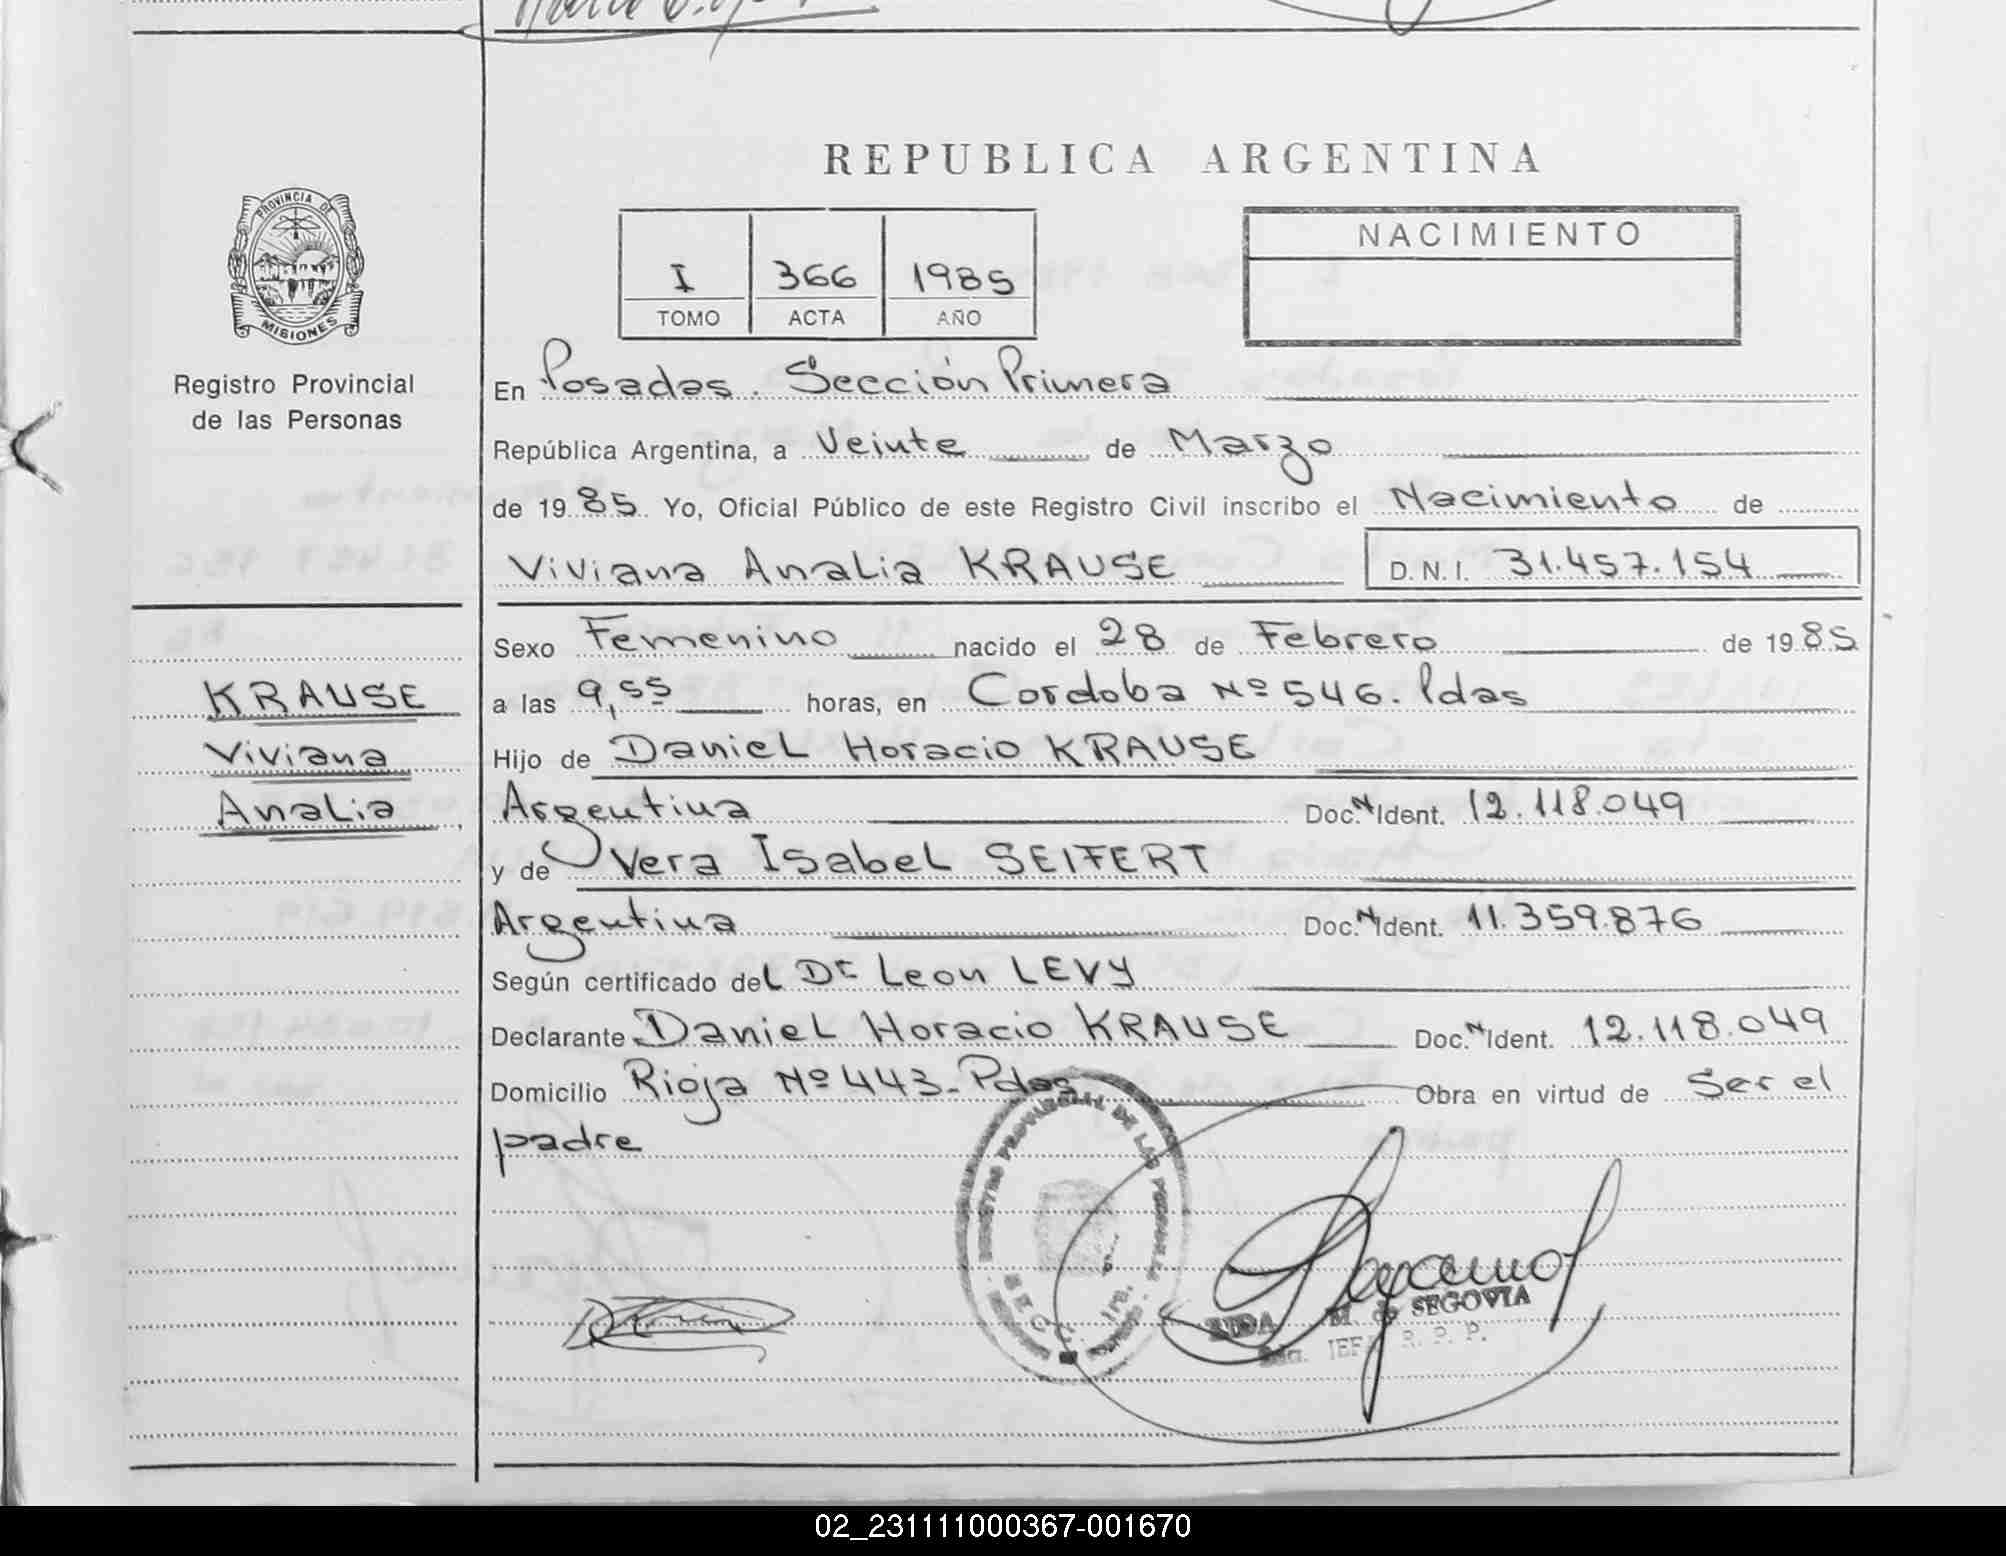 REPUBLICA ARGENTINA
PROVINCIA DE
MISIONES
Registro Provincial
de las Personas
I 366 1985
TOMO ACTA AÑO
NACIMIENTO
En Posadas. Sección Primera
República Argentina, a Veinte de Marzo
de 1985 Yo, Oficial Público de este Registro Civil inscribo el Nacimiento de
Viviana Analia KRAUSE D.N.I. 31.457.154
Sexo Femenino nacido el 28 de Febrero de 1985
a las 9,55 horas, en Cordoba Nº 546. Pdas
Hijo de Daniel Horacio KRAUSE
Argentina Doc. N Ident. 12.118.049
y de Vera Isabel SEIFERT
Argentina Doc. N Ident. 11.359.876
Según certificado del Dr Leon LEVY
Declarante Daniel Horacio KRAUSE Doc. N Ident. 12.118.049
Domicilio Rioja Nº 443_ Pdas Obra en virtud de Ser el
padre
KRAUSE
Viviana
Analia
REGISTRO PROVINCIAL DE LAS PERSONAS
SECC. 1ra.
M. de SEGOVIA
JEFA R. P. P.
02_231111000367-001670